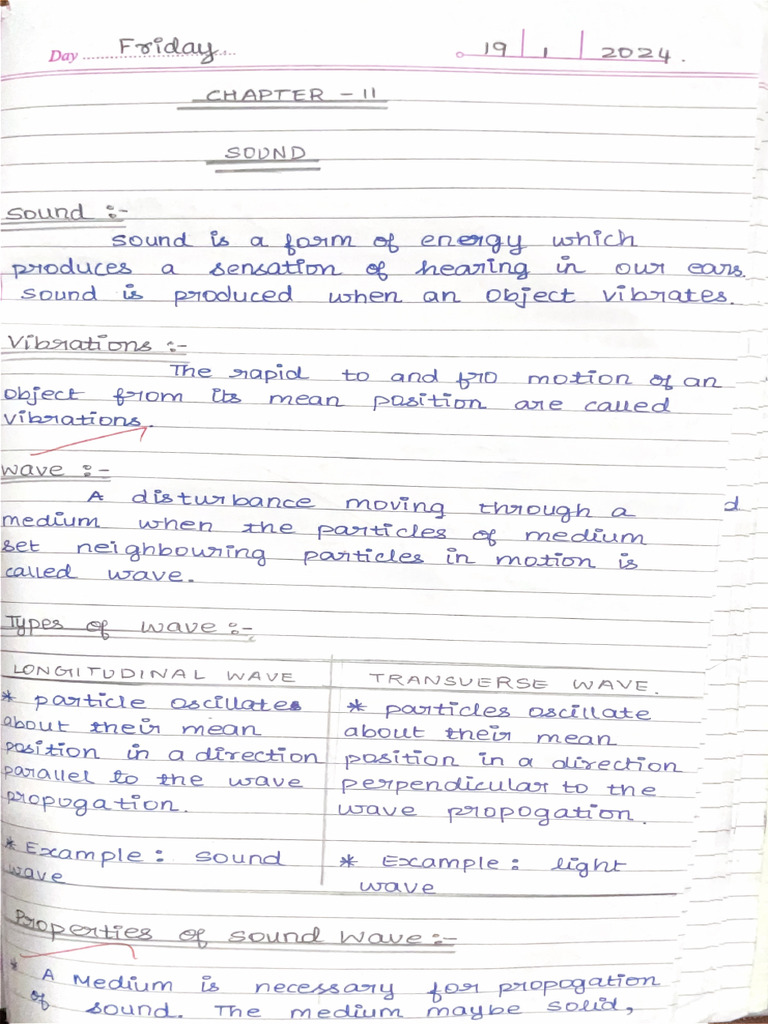 Day Friday 19 1 2024.
CHAPTER - 11
SOUND
Sound :-
Sound is a form of energy which
produces a sensation of hearing in our ears.
Sound is produced when an object vibrates.
Vibrations :-
The rapid to and fro motion of an
object from its mean position are called
vibrations.
Wave :-
A disturbance moving through a
medium when the particles of medium
set neighbouring particles in motion is
called wave.
d
Types of wave :-
LONGITUDINAL WAVE
* particle oscillates
about their mean
position in a direction
parallel to the wave
propogation.
* Example : sound
wave
TRANSVERSE WAVE.
* particles oscillate
about their mean
position in a direction
perpendicular to the
wave propogation.
* Example : light
wave
Properties of sound wave :-
* A Medium is necessary for propogation
of sound. The medium maybe solid,